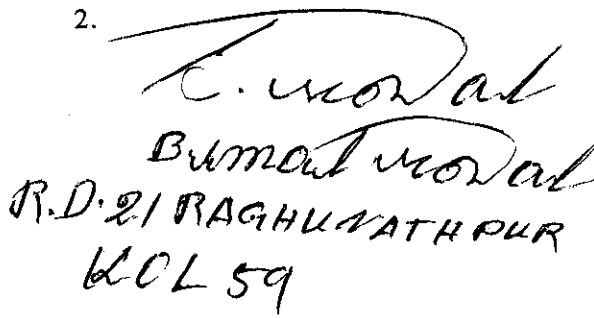 2.
Bimal Mondal
R.D. 21 RAGHUNATHPUR
KOL 59